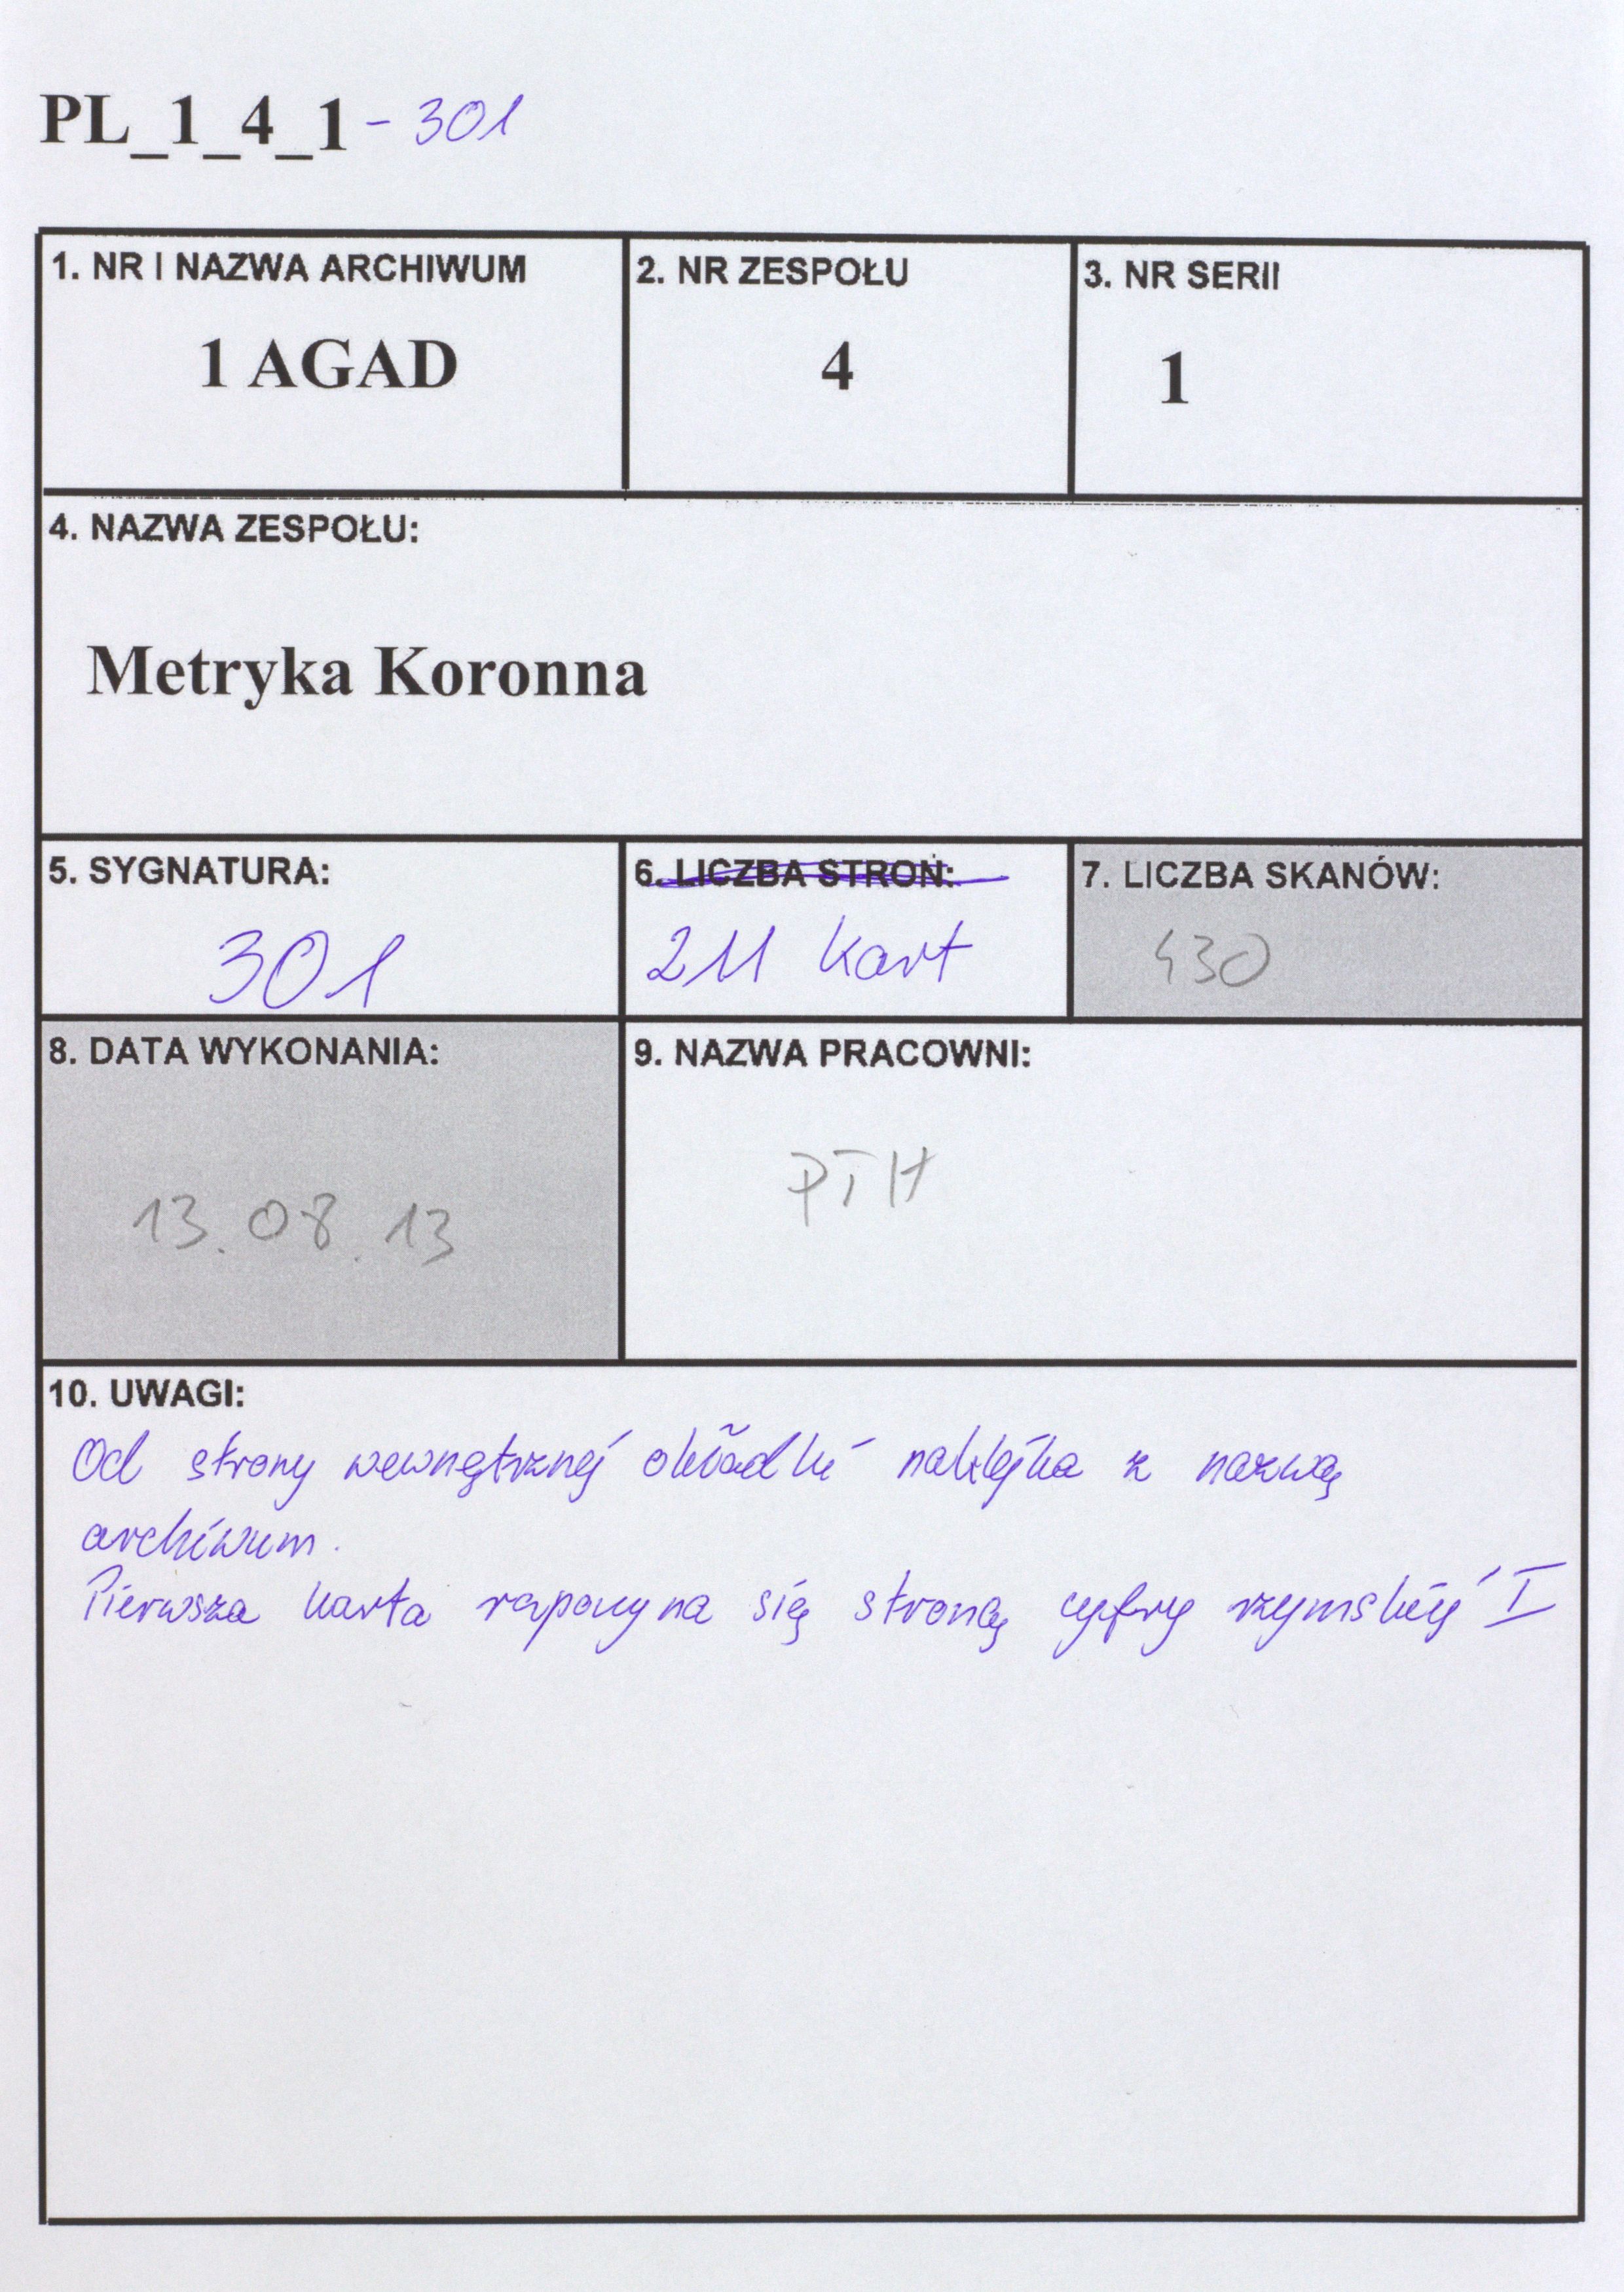 PL_1_4_1 - 301
1. NR I NAZWA ARCHIWUM
1 AGAD
2. NR ZESPOŁU
4
3. NR SERII
1
4. NAZWA ZESPOŁU:
Metryka Koronna
5. SYGNATURA:
301
6. LICZBA STRON:
211 kart
7. LICZBA SKANÓW:
430
8. DATA WYKONANIA:
13.08.13
9. NAZWA PRACOWNI:
PTH
10. UWAGI:
Od strony wewnętrznej okładki naklejka z nazwą
archiwum.
Pierwsza karta rozpoczyna się stroną cyfry rzymskiej I